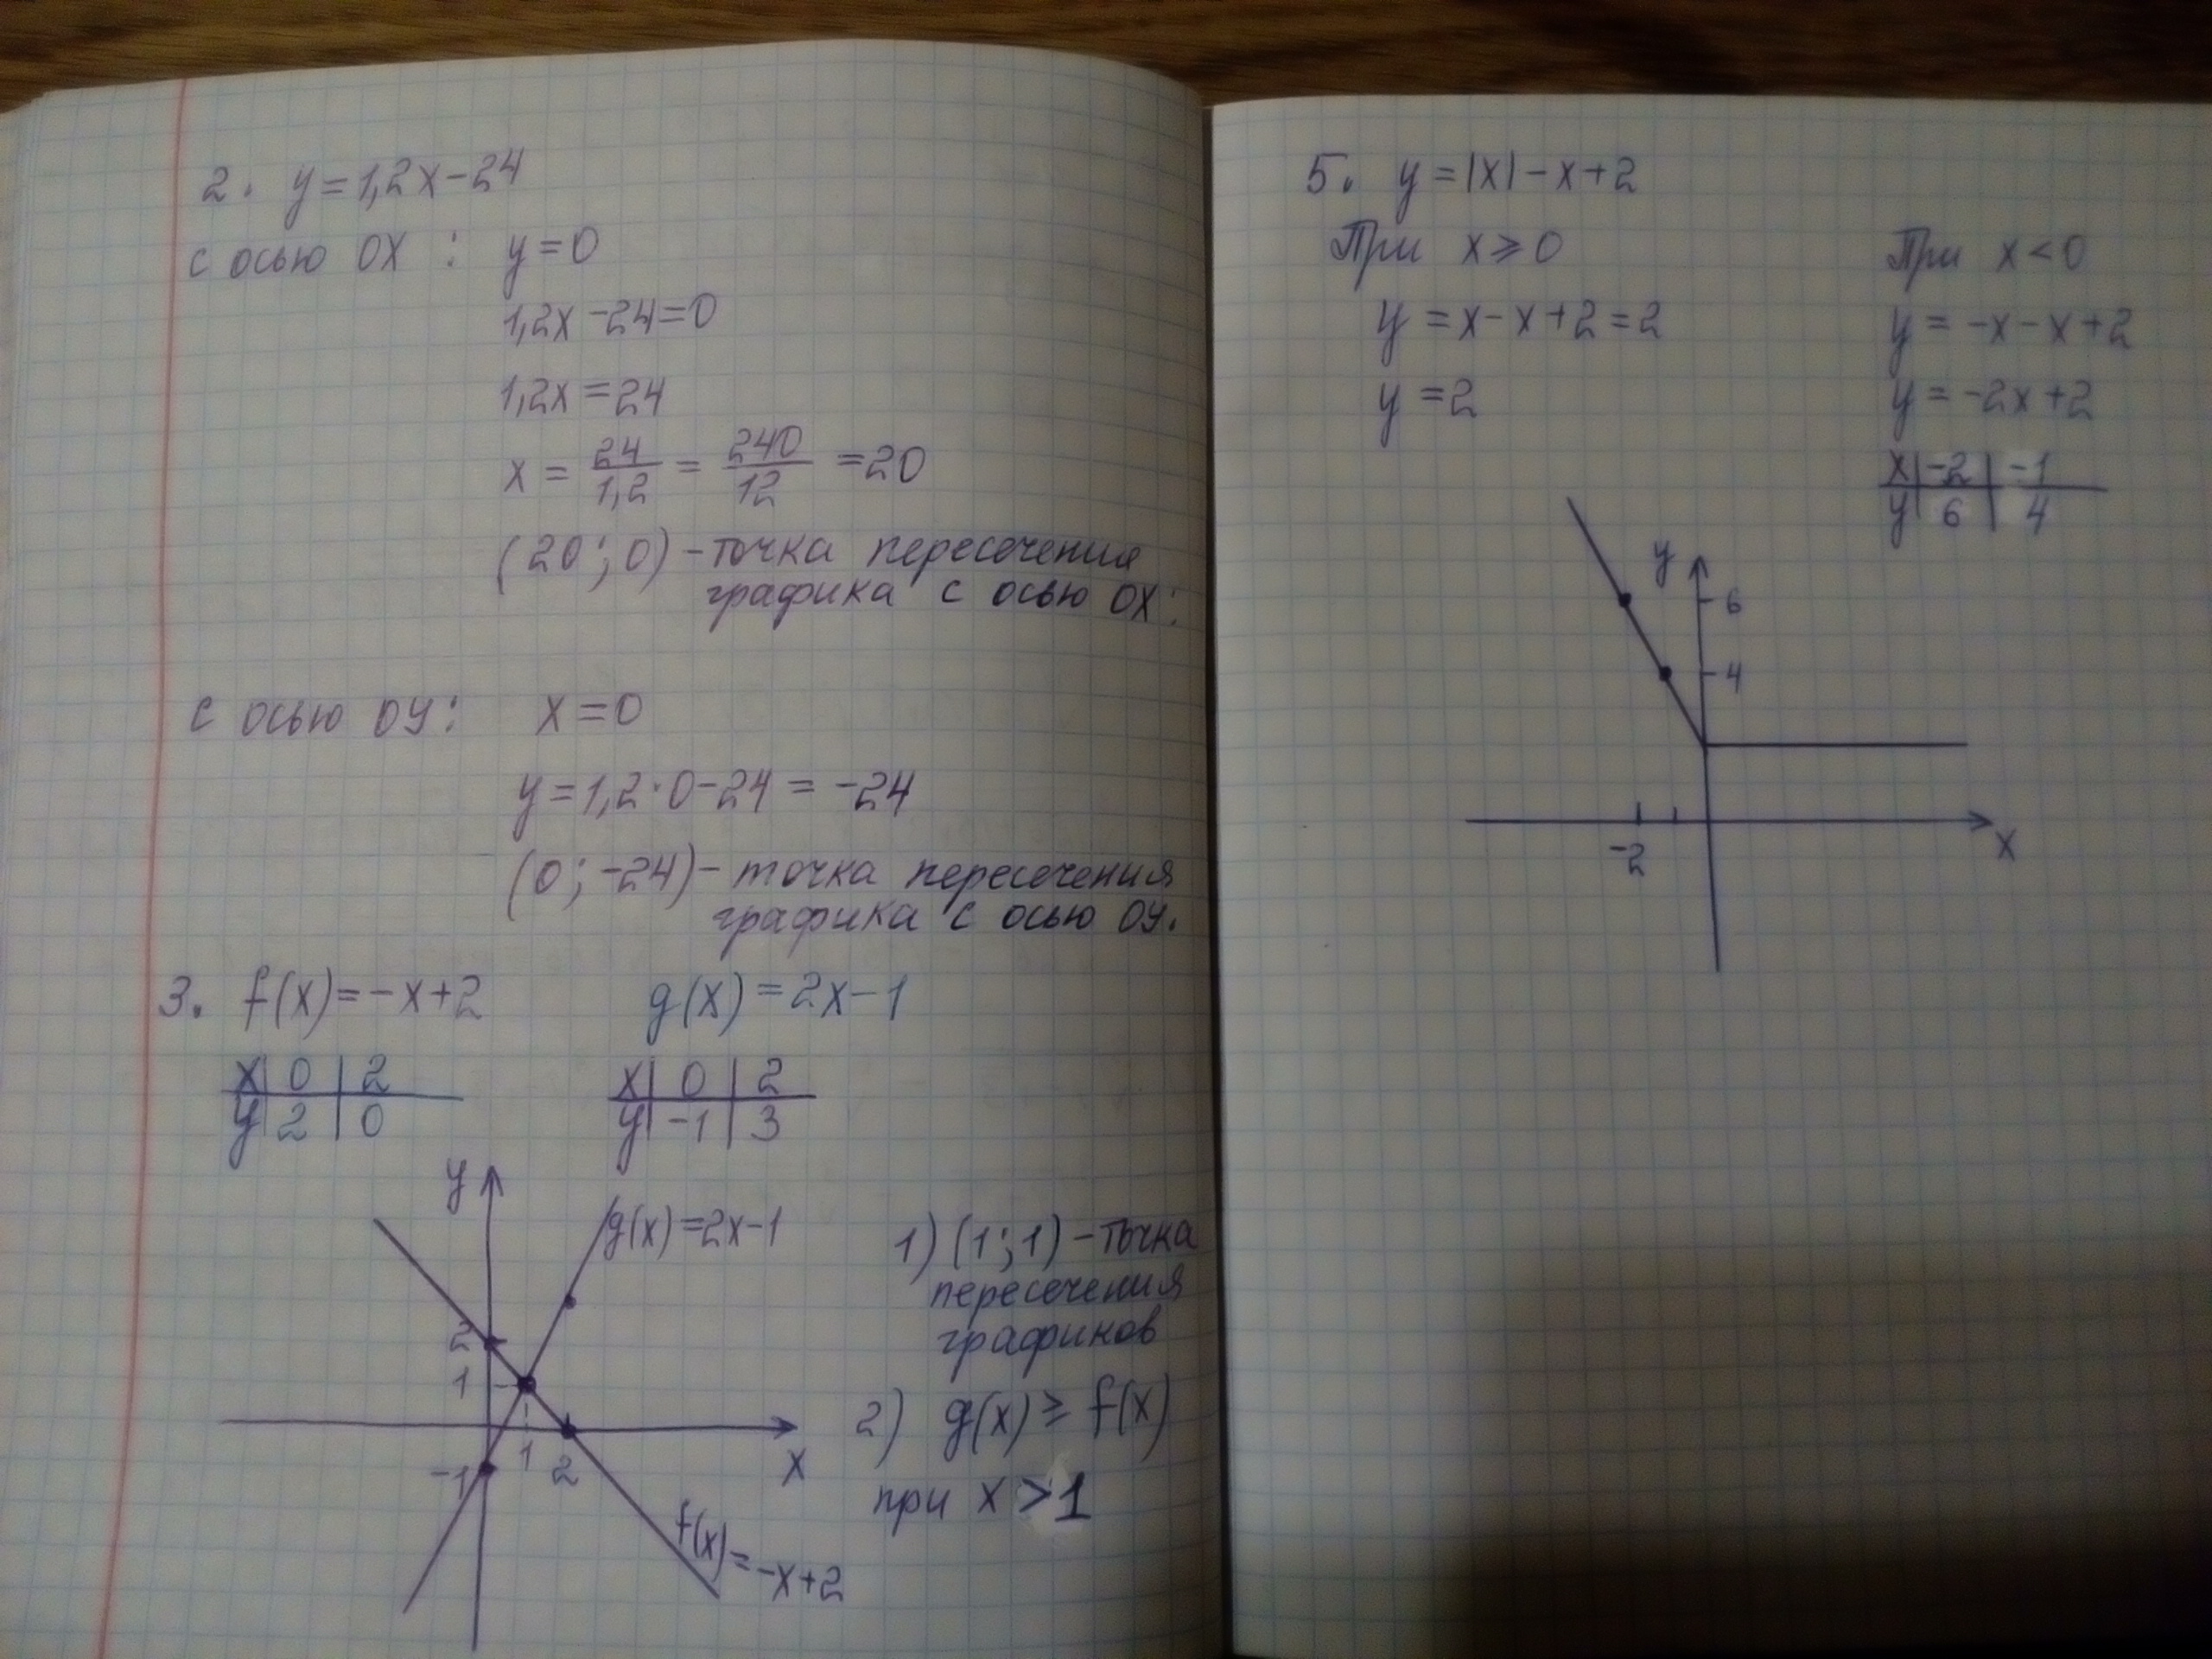 2. y=1,2x-24
с осью OX : y=0
1,2x-24=0
1,2x=24
x = 24/1,2 = 240/12 =20
(20; 0) - точка пересечения
графика с осью OX.
с осью OY: x=0
y=1,2·0-24 = -24
(0; -24) - точка пересечения
графика с осью OY.
3. f(x)=-x+2 g(x)=2x-1
x | 0 | 2
y | 2 | 0
x | 0 | 2
y | -1 | 3
y
g(x)=2x-1
2
1
1
2
-1
x
f(x)=-x+2
1) (1; 1) - точка
пересечения
графиков
2) g(x) ≥ f(x)
при x >1
5. y=|x|-x+2
При x ≥ 0
y = x-x+2=2
y =2
При x < 0
y = -x-x+2
y = -2x+2
x | -2 | -1
y | 6 | 4
y
6
4
-2
x